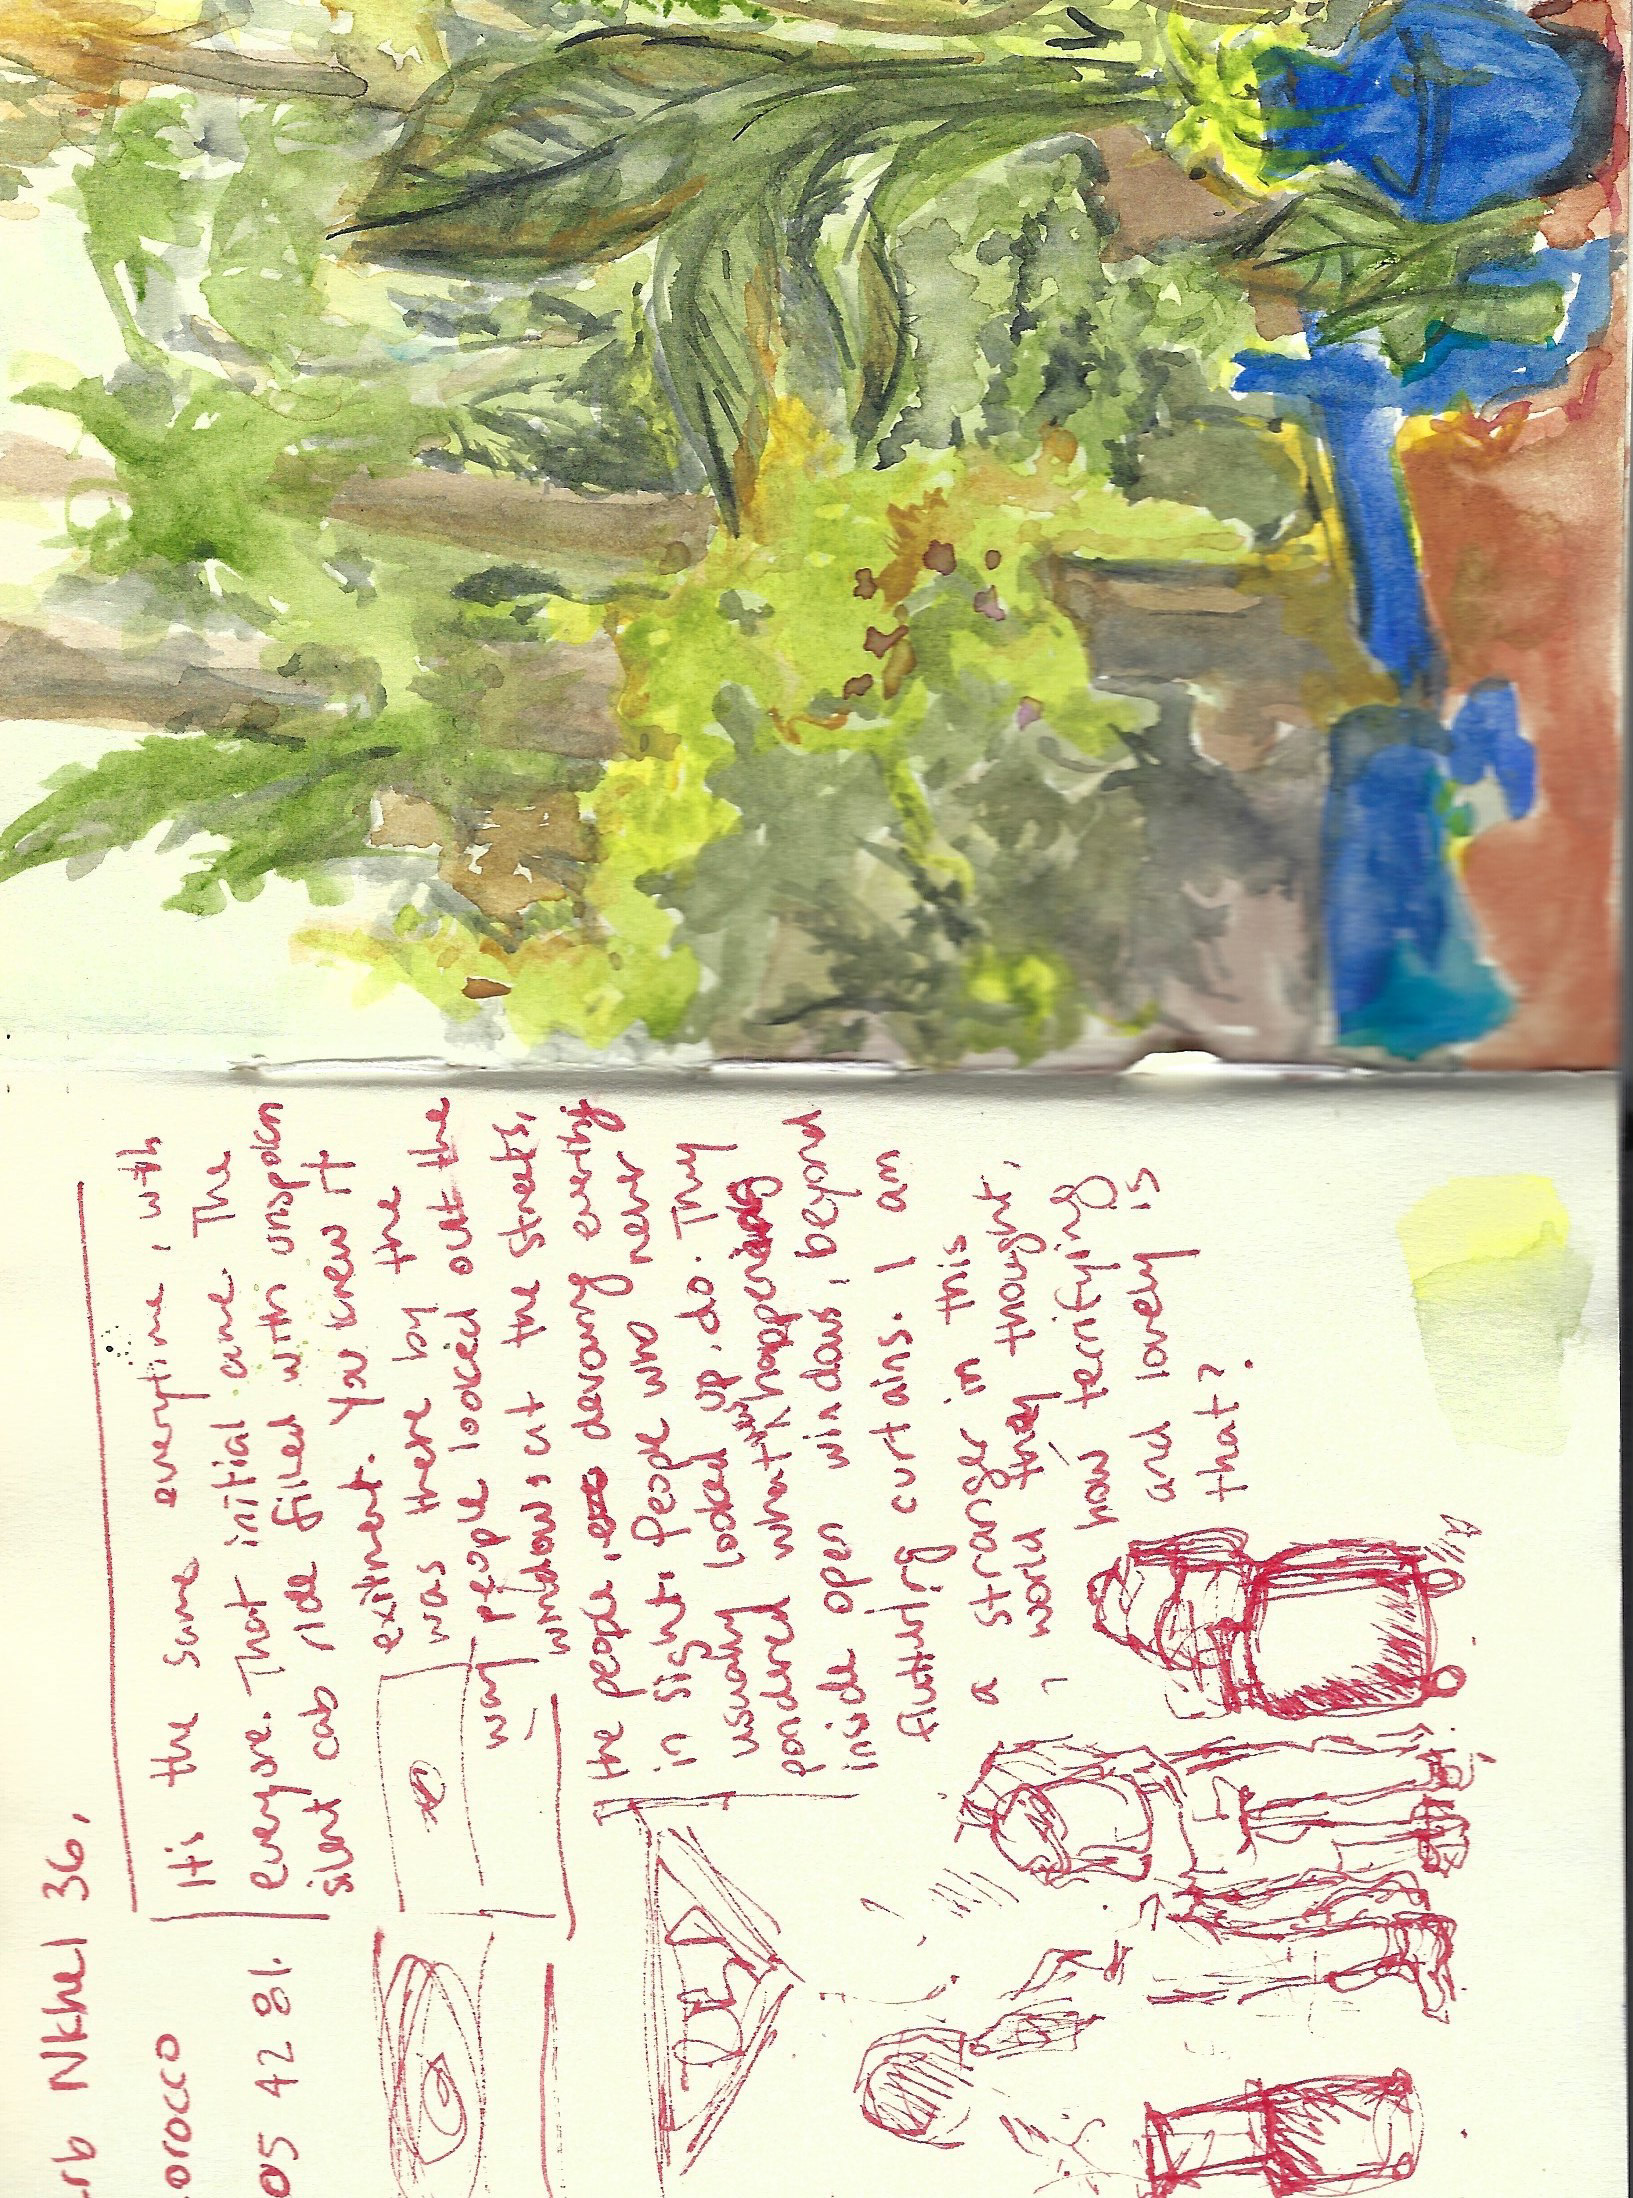 rb Nkhel 36,
orocco
05 42 81.
It is the same everytime, with
everyone. That initial awe. The
silent cab ride filled with unspoken
exitment. You knew it
was there by the
way people looked out the
windows at the streets,
the people, devouring everthing
in sight. People who never
usually looked up, do. They
pondered what was happening
inside open windows, beyond
fluttering curtains. I am
a stranger in this
world they thought,
how terrifying
and lovely is
that?